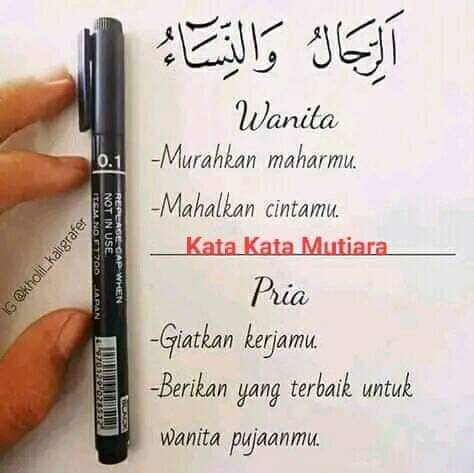 اَلرِّجَالُ وَالنِّسَآءُ
Wanita
-Murahkan maharmu.
-Mahalkan cintamu.
Kata Kata Mutiara
Pria
-Giatkan kerjamu.
-Berikan yang terbaik untuk
wanita pujaanmu.
0.1
REPLACE CAP WHEN
NOT IN USE
JAPAN
IG @kholil_kaligrafer